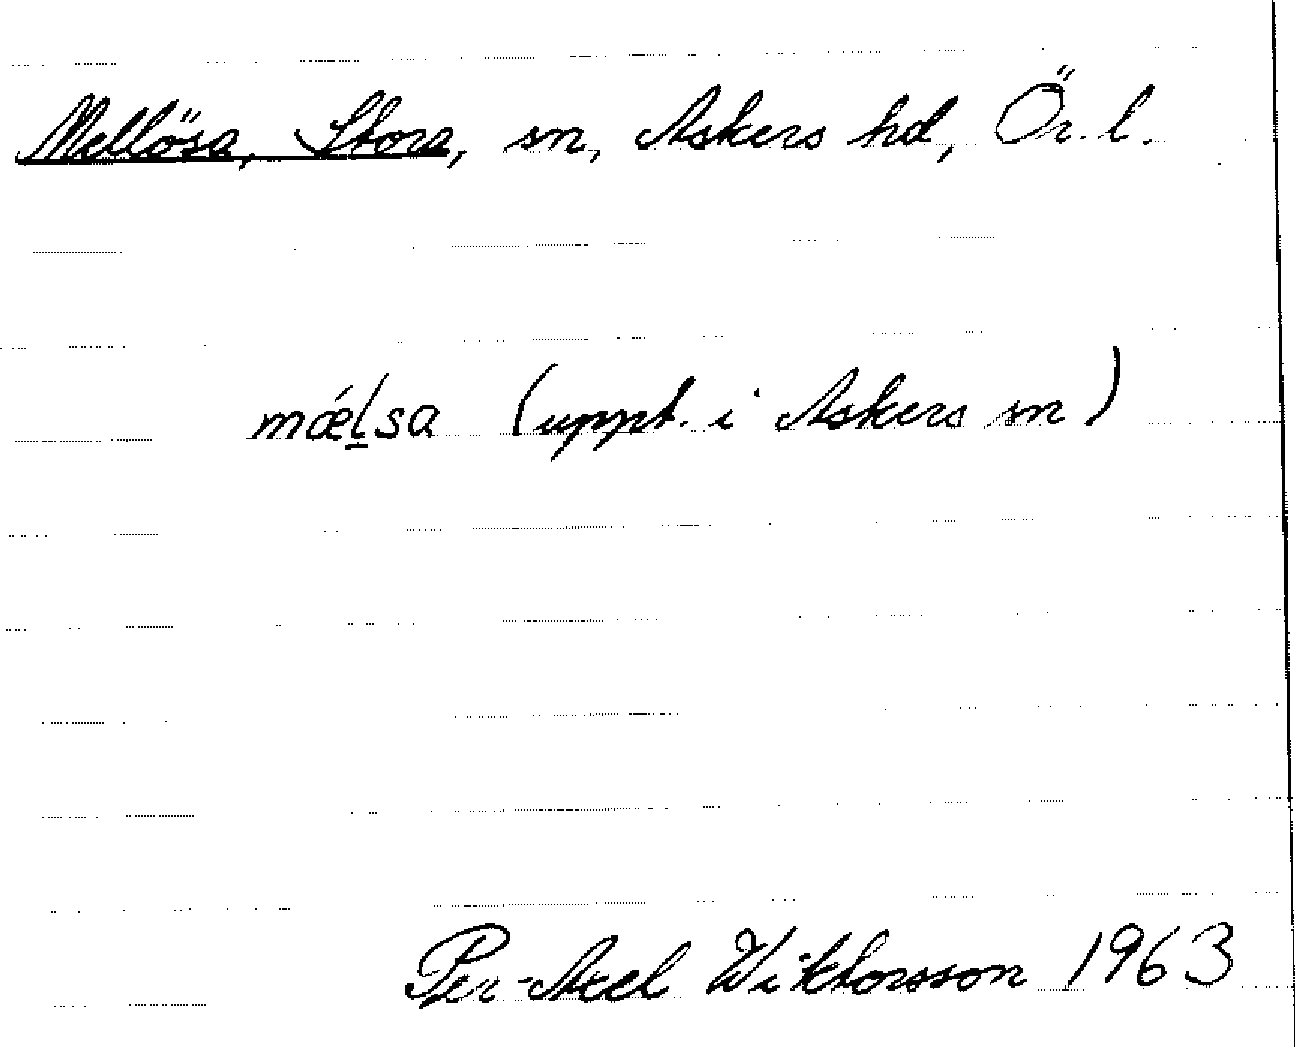 Mellösa, Stora, sn, Askers hd, Ör. l.
mǽl̠sa (uppt. i Askers sn)
Per-Axel Wiktorsson 1963